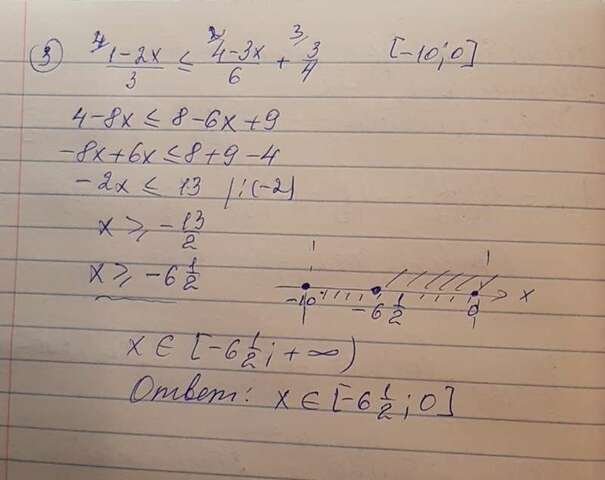 3 ⁴⁾(1-2x)/3 ≤ ²⁾(4-3x)/6 + ³⁾3/4 [-10; 0]
4-8x ≤ 8-6x+9
-8x+6x ≤ 8+9-4
-2x ≤ 13 |:(-2)
x ≥ -13/2
x ≥ -6 1/2
-10 -6 1/2 0 x
x ∈ [-6 1/2; +∞)
Ответ: x ∈ [-6 1/2; 0]